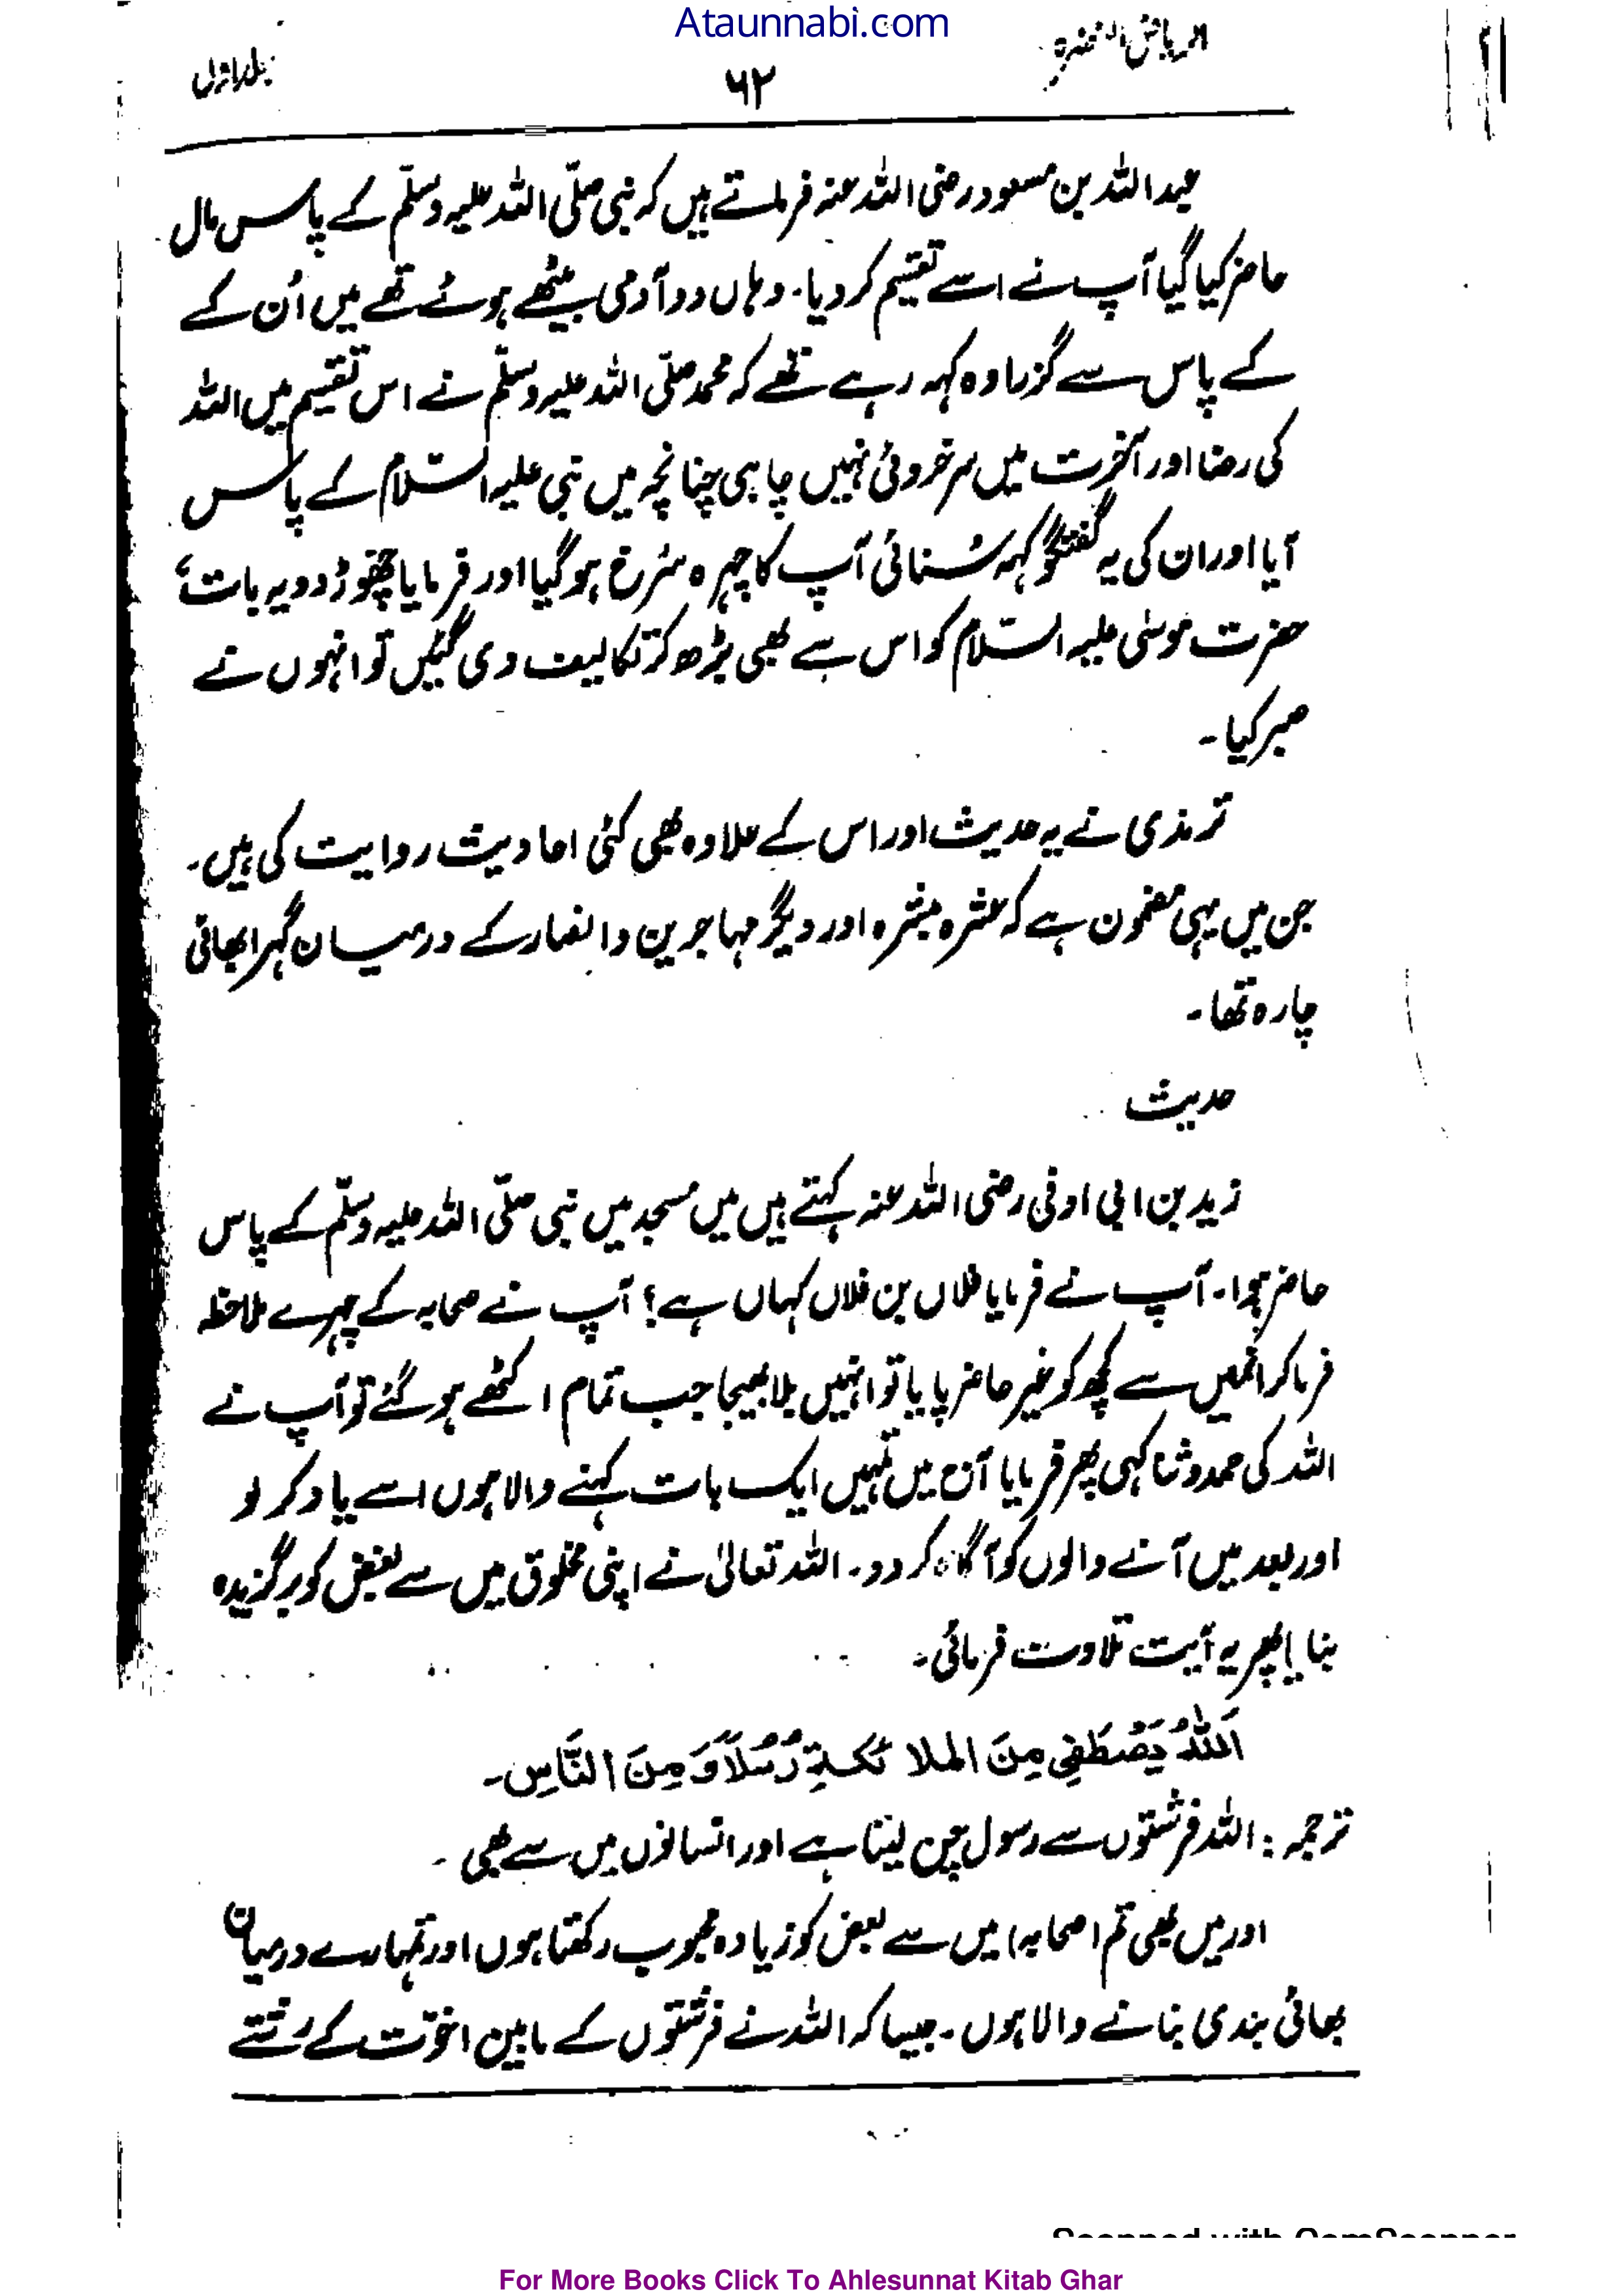 Ataunnabi.com
الریاض النضرہ ۶۲ جلد اول
عبداللہ بن مسعود رضی اللہ عنہ فرماتے ہیں کہ نبی صلّی اللہ علیہ وسلّم کے پاس مال
حاضر کیا گیا آپ نے اسے تقسیم کر دیا۔ وہاں دو آدمی بیٹھے ہوئے تھے میں اُن کے
کے پاس سے گزرا وہ کہہ رہے تھے کہ محمد صلّی اللہ علیہ وسلّم نے اس تقسیم میں اللہ
کی رضا اور آخرت میں سرخروئی نہیں چاہی چنانچہ میں نبی علیہ السّلام کے پاس
آیا اور ان کی یہ گفتگو کہہ سُنائی آپ کا چہرہ سُرخ ہو گیا اور فرمایا چھوڑ دو یہ بات،
حضرت موسٰی علیہ السّلام کو اس سے بھی بڑھ کر تکالیف دی گئیں تو انہوں نے
صبر کیا۔
ترمذی نے یہ حدیث اور اس کے علاوہ بھی کئی احادیث روایت کی ہیں۔
جن میں یہی مضمون ہے کہ عشرہ مبشرہ اور دیگر مہاجرین و انصار کے درمیان گہرا بھائی
چارہ تھا۔
حدیث
زید بن ابی اوفی رضی اللہ عنہ کہتے ہیں میں مسجد میں نبی صلّی اللہ علیہ وسلّم کے پاس
حاضر ہوا۔ آپ نے فرمایا فلاں بن فلاں کہاں ہے؟ آپ نے صحابہ کے چہرے ملاحظہ
فرما کر انمیں سے کچھ کو غیر حاضر پایا تو انہیں بلا بھیجا جب تمام اکٹھے ہو گئے تو آپ نے
اللہ کی حمد و ثنا کہی پھر فرمایا آج میں تمہیں ایک بات کہنے والا ہوں اسے یاد کر لو
اور بعد میں آنے والوں کو آگاہ کر دو۔ اللہ تعالیٰ نے اپنی مخلوق میں سے بعض کو برگزیدہ
بنایا پھر یہ آیت تلاوت فرمائی۔
اَللّٰہُ یَصْطَفِی مِنَ الملائکۃِ رُسُلاً وَّ مِنَ النَّاسِ۔
ترجمہ : اللہ فرشتوں سے رسول چن لیتا ہے اور انسانوں میں سے بھی ۔
اور میں بھی تم (صحابہ) میں سے بعض کو زیادہ محبوب رکھتا ہوں اور تمہارے درمیان
بھائی بندی بنانے والا ہوں۔ جیسا کہ اللہ نے فرشتوں کے مابین اخوّت کے رشتے
Scanned with CamScanner
For More Books Click To Ahlesunnat Kitab Ghar